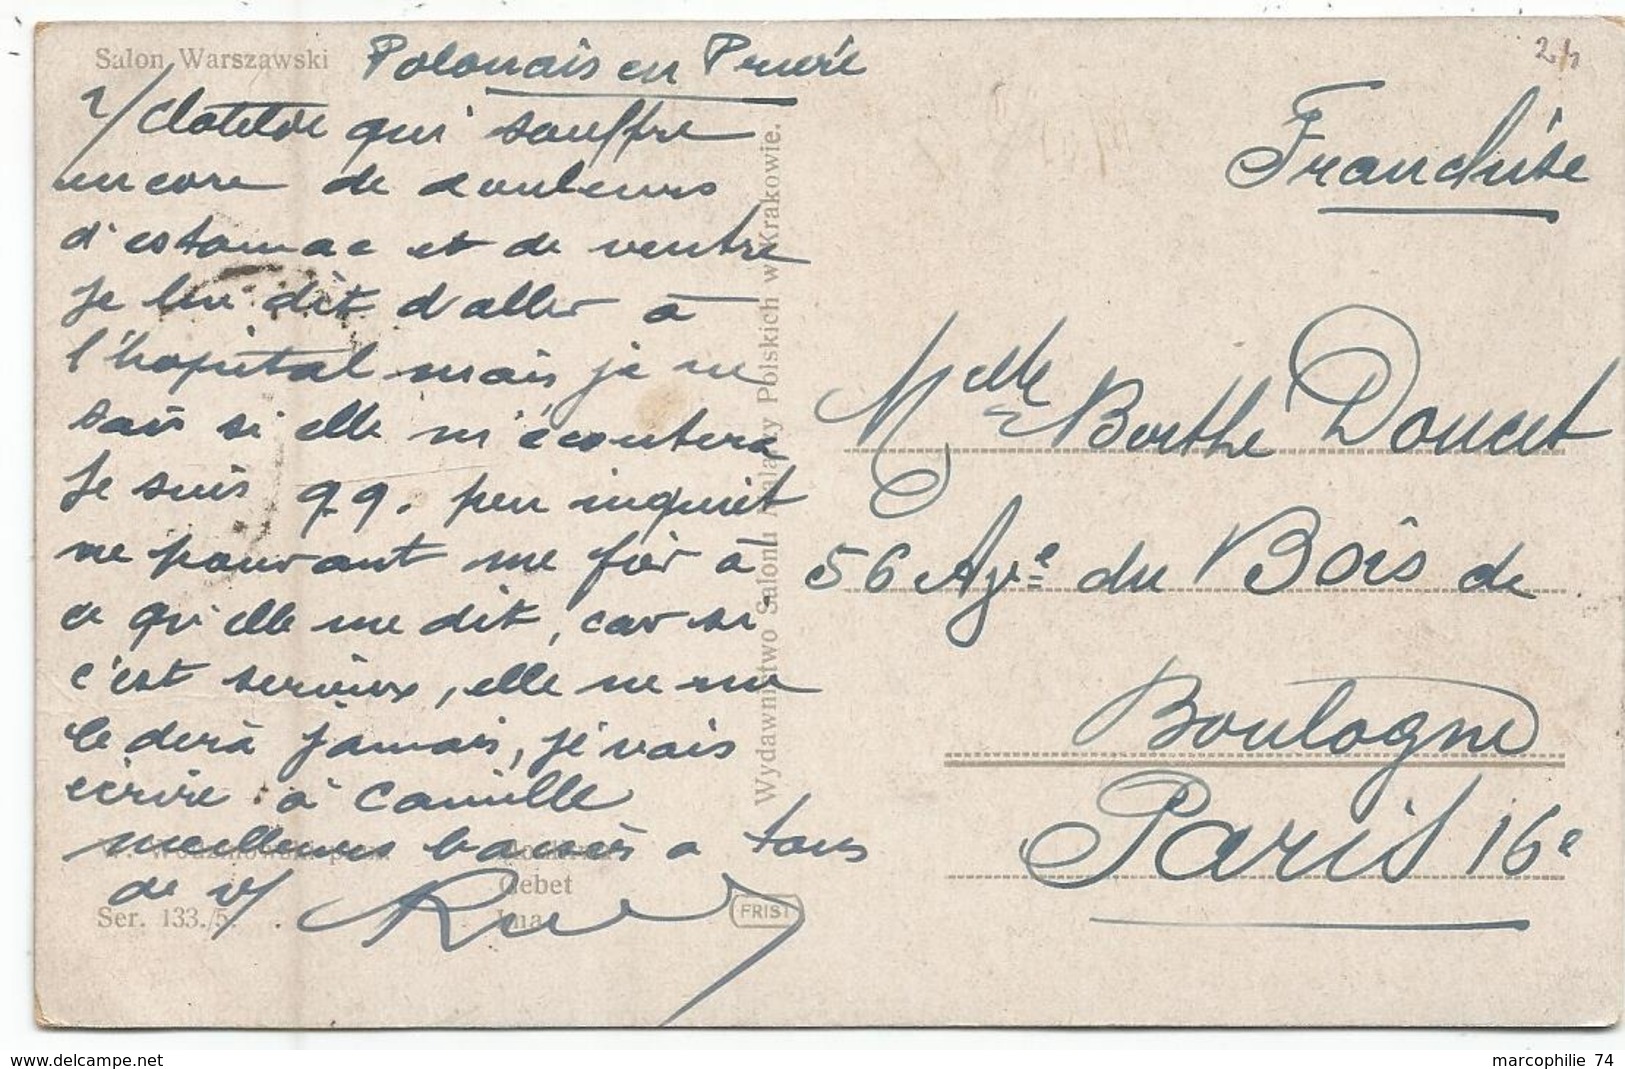 Salon Warszawski
Polonais en Prière
2/1
2/ Clotilde qui souffre
encore de douleurs
d'estomac et de ventre
je lui dit d'aller à
l'hopital mais je ne
sais si elle m'écoutera
Je suis qq. peu inquiet
ne pouvant me fier à
ce qu'elle me dit, car si
c'est serieux, elle ne me
le dera jamais, je vais
écrire à Camille
meilleurs baisers a tous
de v/
Ser. 133./5.
Gebet
FRIST
Wydawnictwo Salonu Malarzy Polskich w Krakowie.
Franchise
Melle Berthe Doucet
56 Ave du Bois de
Boulogne
Paris 16e
www.delcampe.net
marcophilie 74